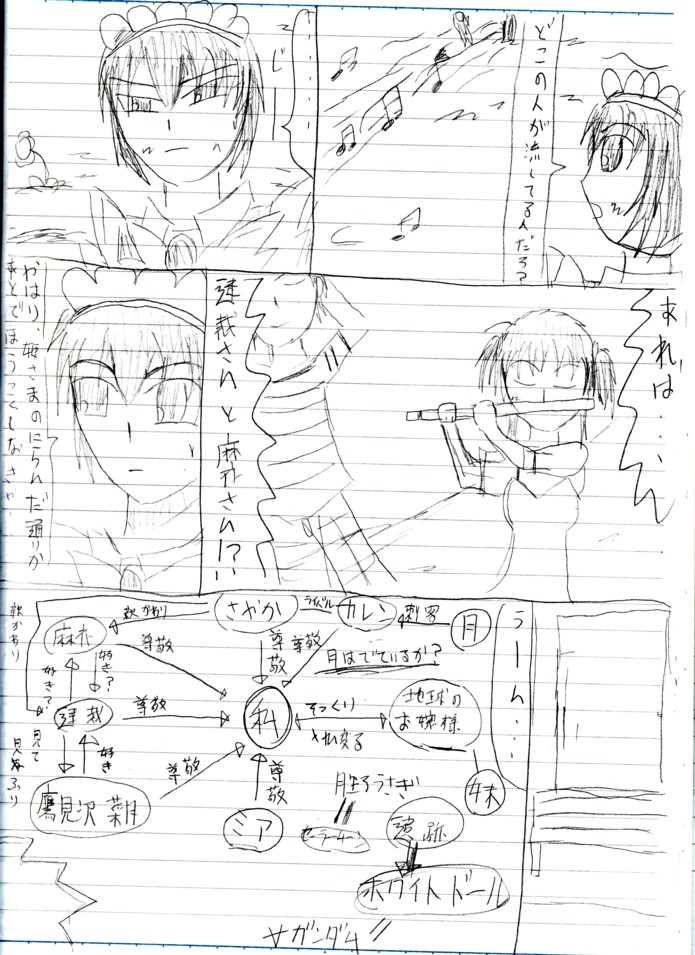 どこの人が流してる人だろ?
‥‥‥‥
じー
あれは‥‥
達哉さんと麻衣さん!?
やはり、姫さまのにらんだ通りか
うーん‥‥
さやか
ライバル
カレン
刺客
月
麻衣
尊敬
尊敬
尊敬
月はでているか?
好き?
好き?
尊敬
私
そっくり
入れ変る
地球の
お嬢様
妹
好き
見て
見ぬふり
鷹見沢 菜月
尊敬
尊敬
ミア
月ろうさぎ
セーラームーン
遺跡
ホワイトドール
∀ガンダム